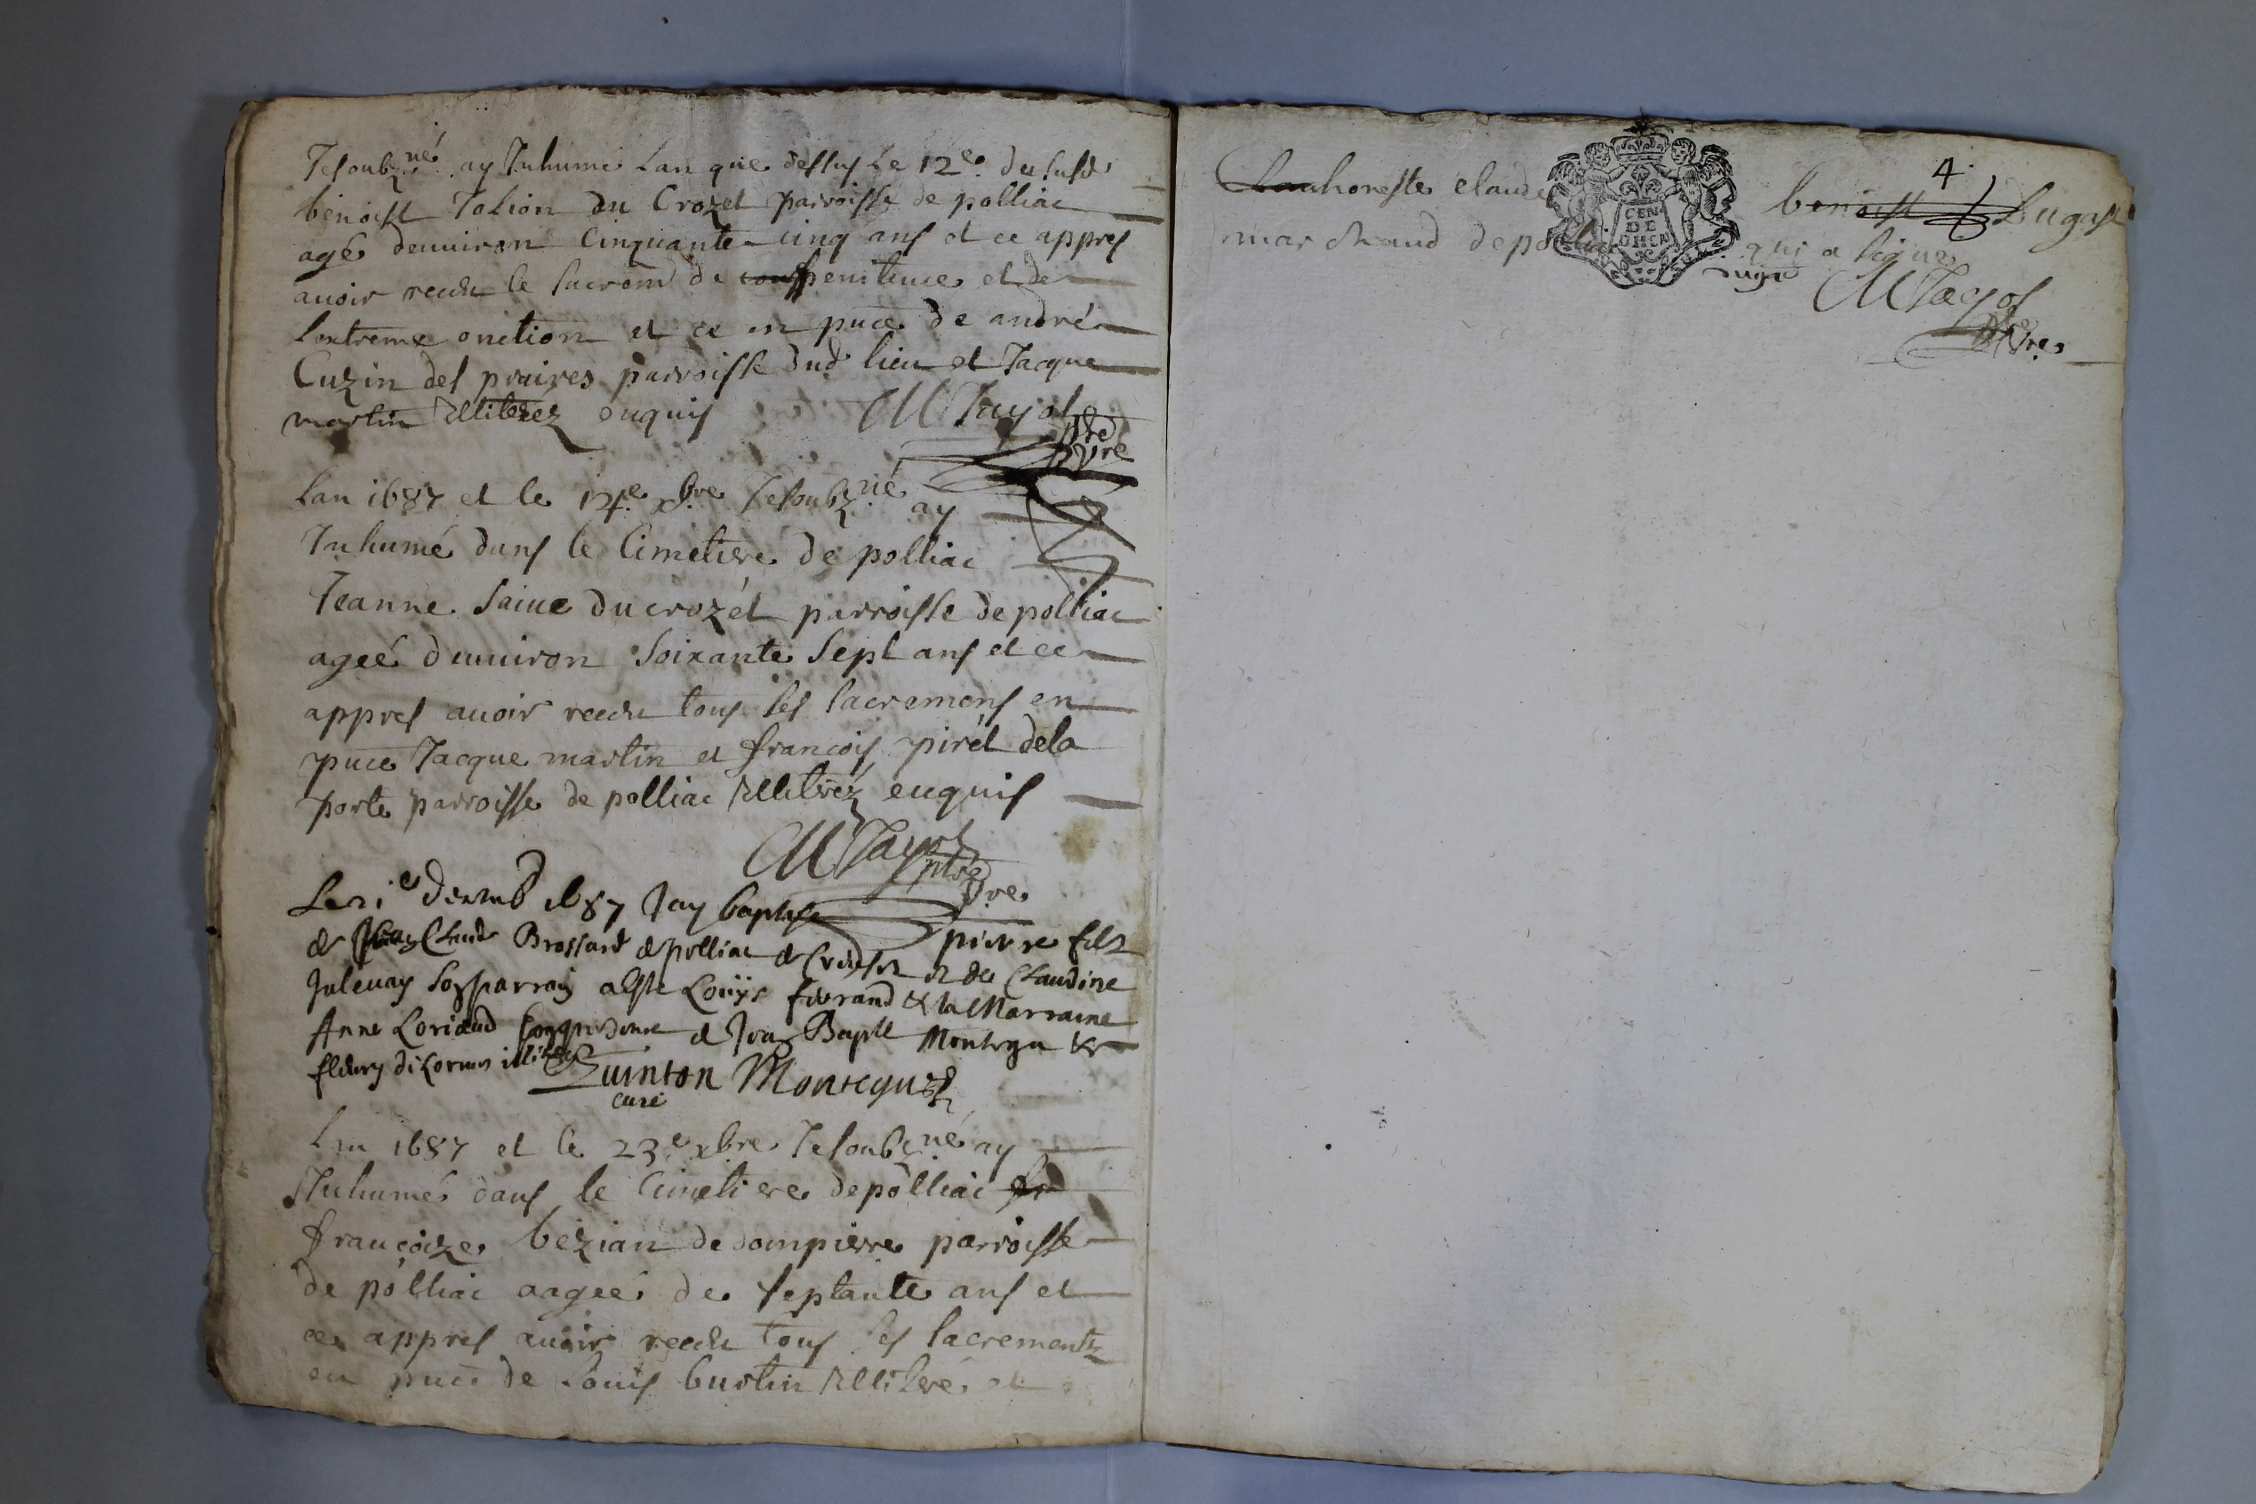 Jesoubz.né ay Inhumé Lan que dessus le 12e du susd
benoist Tolion du Crozet parroisse de polliac
agé denuiron Cinquante-cinq ans et ce appres
auoir receu le sacrem de penitence et de
Lextreme onction et ce en pnce de andré
Cuzin des praires parroisse dud lieu et Jacque
martin Illiterez enquis M Jayol
ptre
vre
Lan 1687 et le 14e xbre Jesoubz.né ay
Inhumé dans le Cimetiere de polliac
Jeanne Saiue du crozét parroisse de polliac
ageé denuiron soixante sept ans et ce
appres auoir receu tous ses sacremens en
pnce Jacque martin et françois pirét dela
porte parroisse de polliac Illitréz enquis
M Jayol
ptre
vre
Le 21e decemb 1687 Jay baptise pierre fils
de Claude Brossard de polliac de et de Claudine
Julenay Son parrain a este Louys fberand & la Marraine
Anne Loriaud En presence de Jean Bapte Montegu &
fleury diLormes illiteré Quinton Montegu
curé
Lan 1687 et le 23e xbre Jesoubz.né ay
Inhumé dans le Cimetiere de polliac fr
françoize bézian de dompierre parroisse
de pólliac aageé de septante ans et
ce appres auoir receu tous ses sacrementz
en pnce de Louis burtin Illitéré et
4
Lanhoneste claude benoist Lugast
marchand de polliac qui a signé
CEN
DE
LYON
M Jayol
ptre
vre